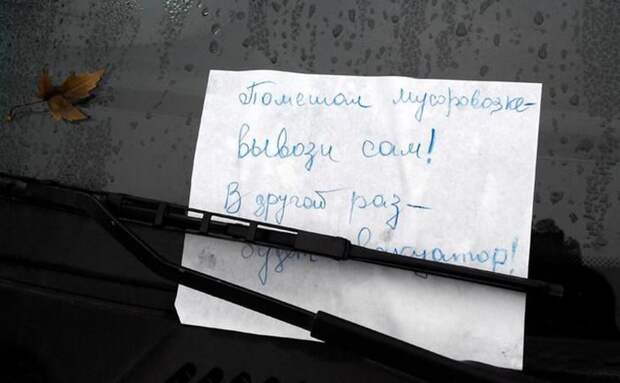 Помешал мусоровозке-
вывози сам!
В другой раз-
будет эвакуатор!